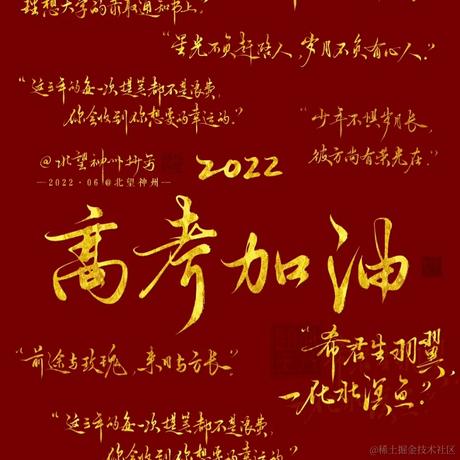 理想大学的录取通知书上。”
“星光不负赶路人，岁月不负有心人。”
“这三年的每一次提笔都不是浪费，
你会收到你想要的幸运的。”
“少年不惧岁月长，
彼方尚有荣光在。”
@北望神州抄写
—2022·06@北望神州—
2022
高考加油
“希君生羽翼，
一化北溟鱼。”
“前途与玫瑰，来日与方长。”
“这三年的每一次提笔都不是浪费，
你会收到你想要的幸运的。”
@稀土掘金技术社区